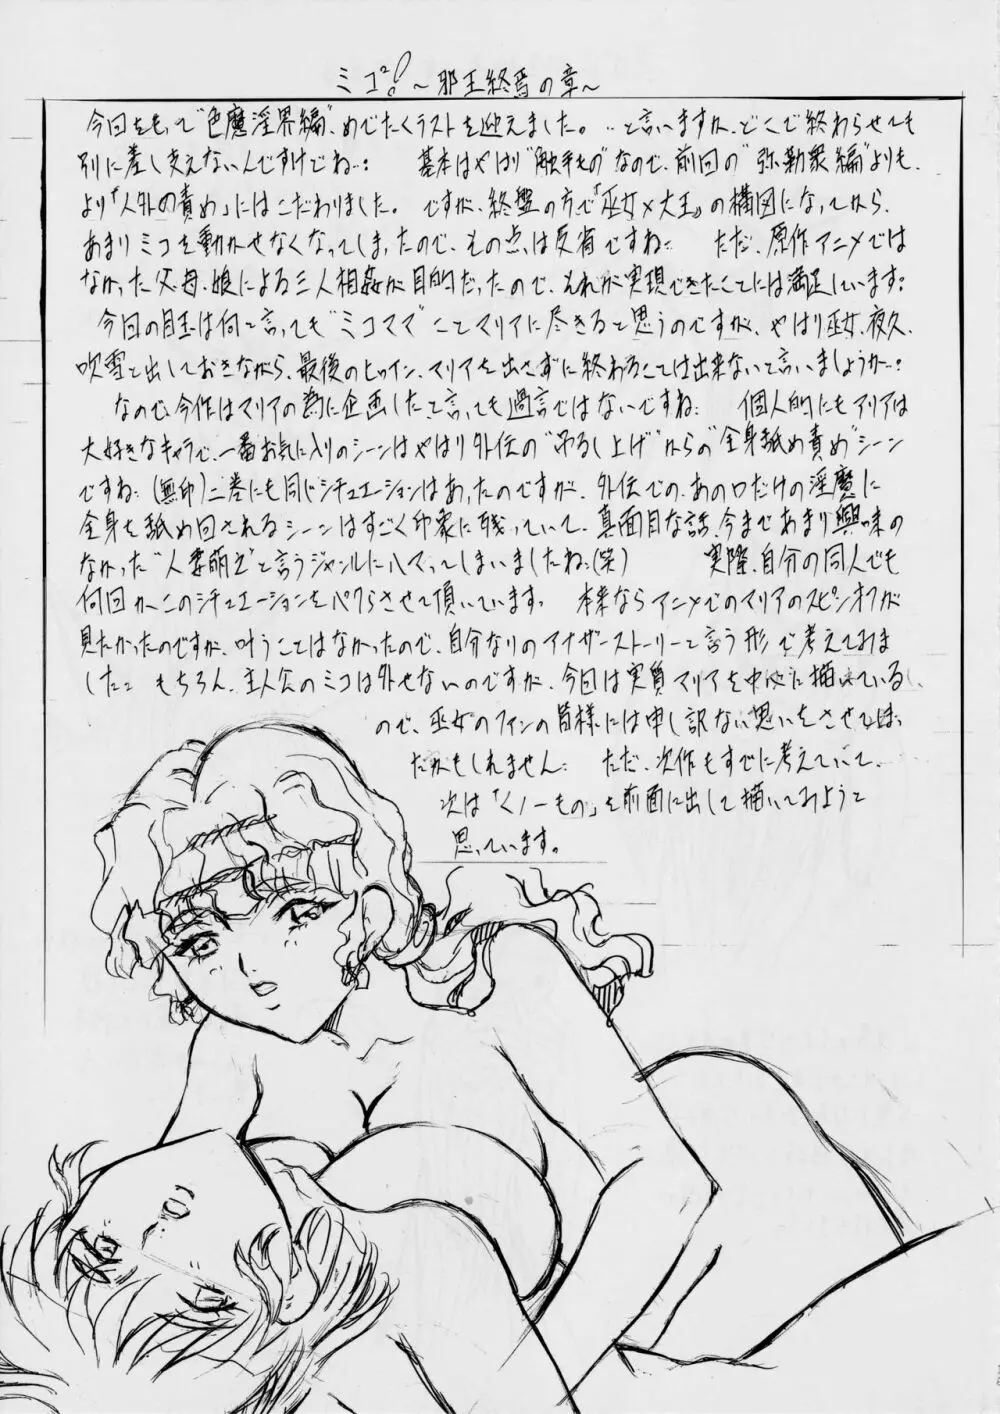 ミコ²! ～邪王終焉の章～
今回をもって"色魔淫界編"、めでたくラストを迎えました。‥と言いますか、どこで終わらせても
別に差し支えないんですけどね‥: 基本はやはり"触手もの"なので、前回の"弥勒衆編"よりも、
より「人外の責め」にはこだわりました。ですが、終盤の方で『巫女×大王』の構図になってから、
あまりミコを動かせなくなってしまったので、その点は反省ですね: ただ、原作アニメでは
なかった父、母、娘による三人相姦が目的だったので、それが実現できたことには満足しています:
今回の目玉は何と言っても"ミコママ"ことマリアに尽きると思うのですが、やはり巫女、夜久、
吹雪と出しておきながら、最後のヒロイン、マリアを出さずに終わることは出来ないと言いましょうか‥:
なので、今作はマリアの為に企画したと言っても過言ではないですね: 個人的にもマリアは
大好きなキャラで、一番お気に入りのシーンはやはり外伝の"吊るし上げ"からの"全身舐め責め"シーン
ですね: (無印)二巻にも同じシチュエーションはあったのですが、外伝での、あの口だけの淫魔に
全身を舐め回されるシーンはすごく印象に残っていて、真面目な話、今まであまり興味の
なかった"人妻萌え"と言うジャンルにハマってしまいましたね:(笑) 実際、自分の同人でも
何回か、このシチュエーションをパクらさせて頂いています: 本来ならアニメでのマリアのスピンオフが
見たかったのですが、叶うことはなかったので、自分なりのアナザーストーリーと言う形で考えてみま
した: もちろん、主人公のミコは外せないのですが、今回は実質マリアを中心に描いている
ので、巫女のファンの皆様には申し訳ない思いをさせてしまっ
たかもしれません: ただ、次作もすでに考えていて、
次は「くノ一もの」を前面に出して描いてみようと
思っています。